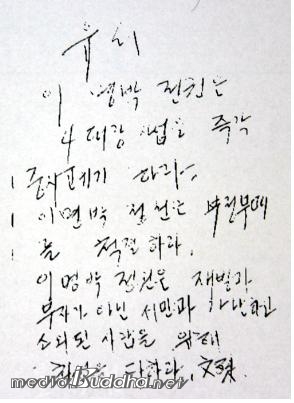 유서
이 명박 정권은
4 대강 사업을 즉각
중지 폐기 하라,
이명박 정권은 부정부패
를 척결하라.
이명박 정권은 재벌과
부자가 아닌 서민과 가난하고
소외된 사람을 위해
최선을 다하라, 文殊.
media.Buddha.net